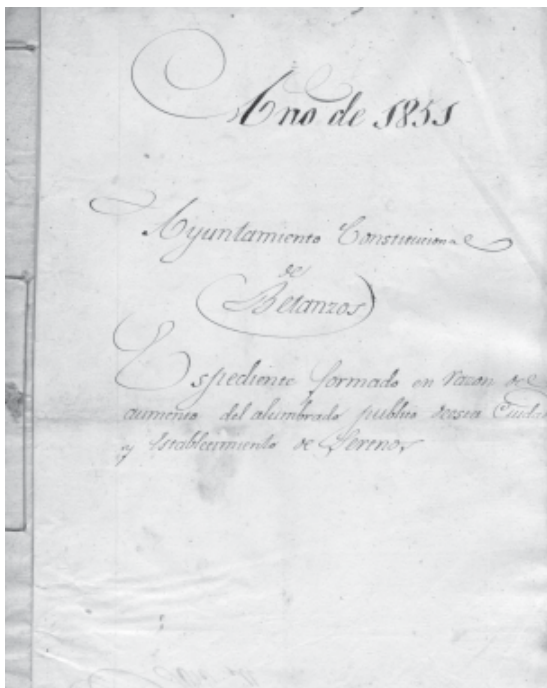 Año de 1851
Ayuntamiento Constitucional
de
Betanzos
Espediente formado en razon de
aumento del alumbrado publico de esta Ciudad
y establecimiento de Serenos